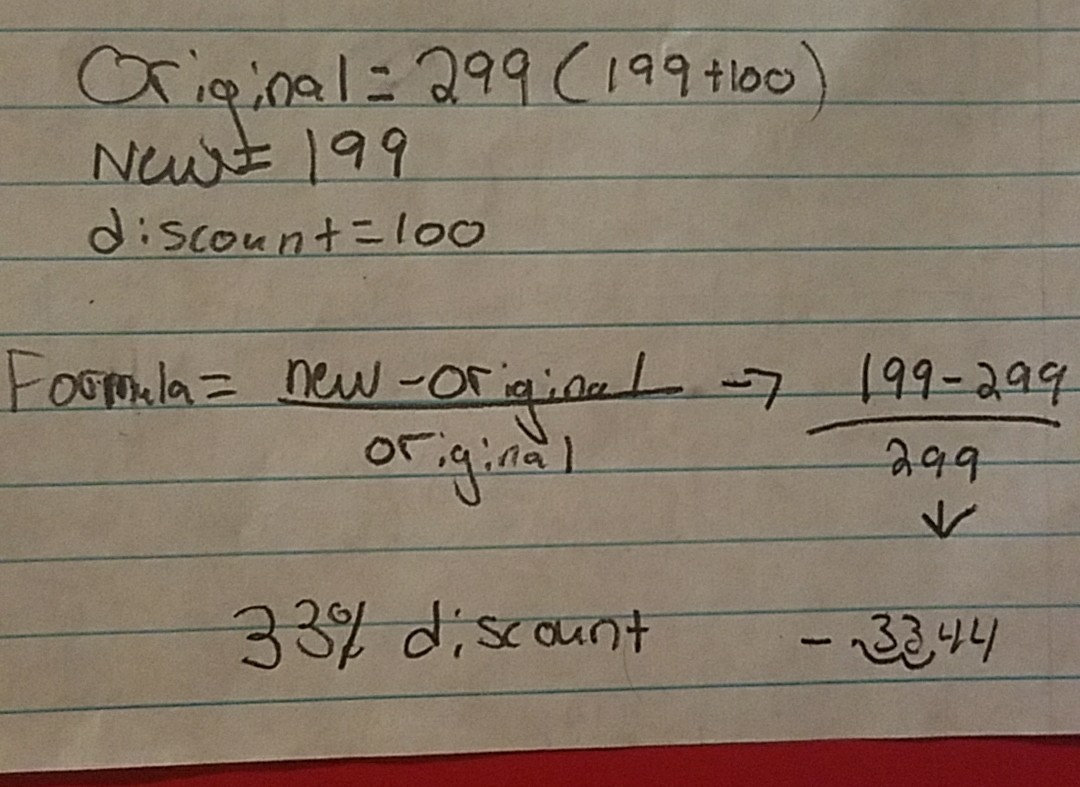 Original = 299 (199+100)
New = 199
discount = 100
Formula = new - original / original → 199-299 / 299
↓
33% discount - .3344